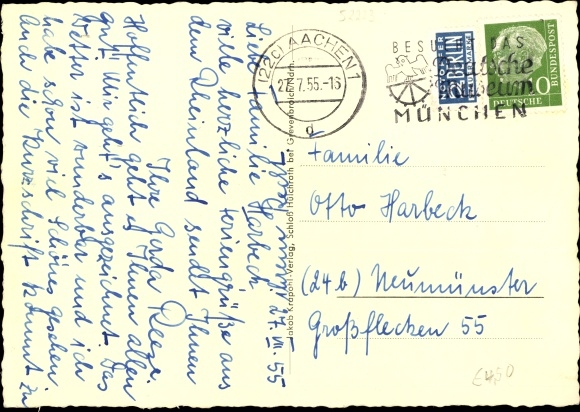 Liebe Familie Harbeck
viele herzliche Feriengrüße aus
dem Rheinland sendet Ihnen
Ihre Gerda Reese.
Hoffentlich geht es Ihnen allen
gut. Mir geht's ausgezeichnet. Das
Wetter ist wunderbar und ich
habe schon viel Schönes gesehen.
Auch die Kurzschrift kommt zu
27. VII. 55
Jakob Krapohl-Verlag, Schloß Hülchrath bei Grevenbroich/Ndrh.
(22c) AACHEN 1
7.55.-16
d
BESUCHT DAS
Deutsche
Museum
MÜNCHEN
NOTOPFER
2 BERLIN
STEUERMARKE
DEUTSCHE
BUNDESPOST
10
Familie
Otto Harbeck
(24b) Neumünster
Großflecken 55